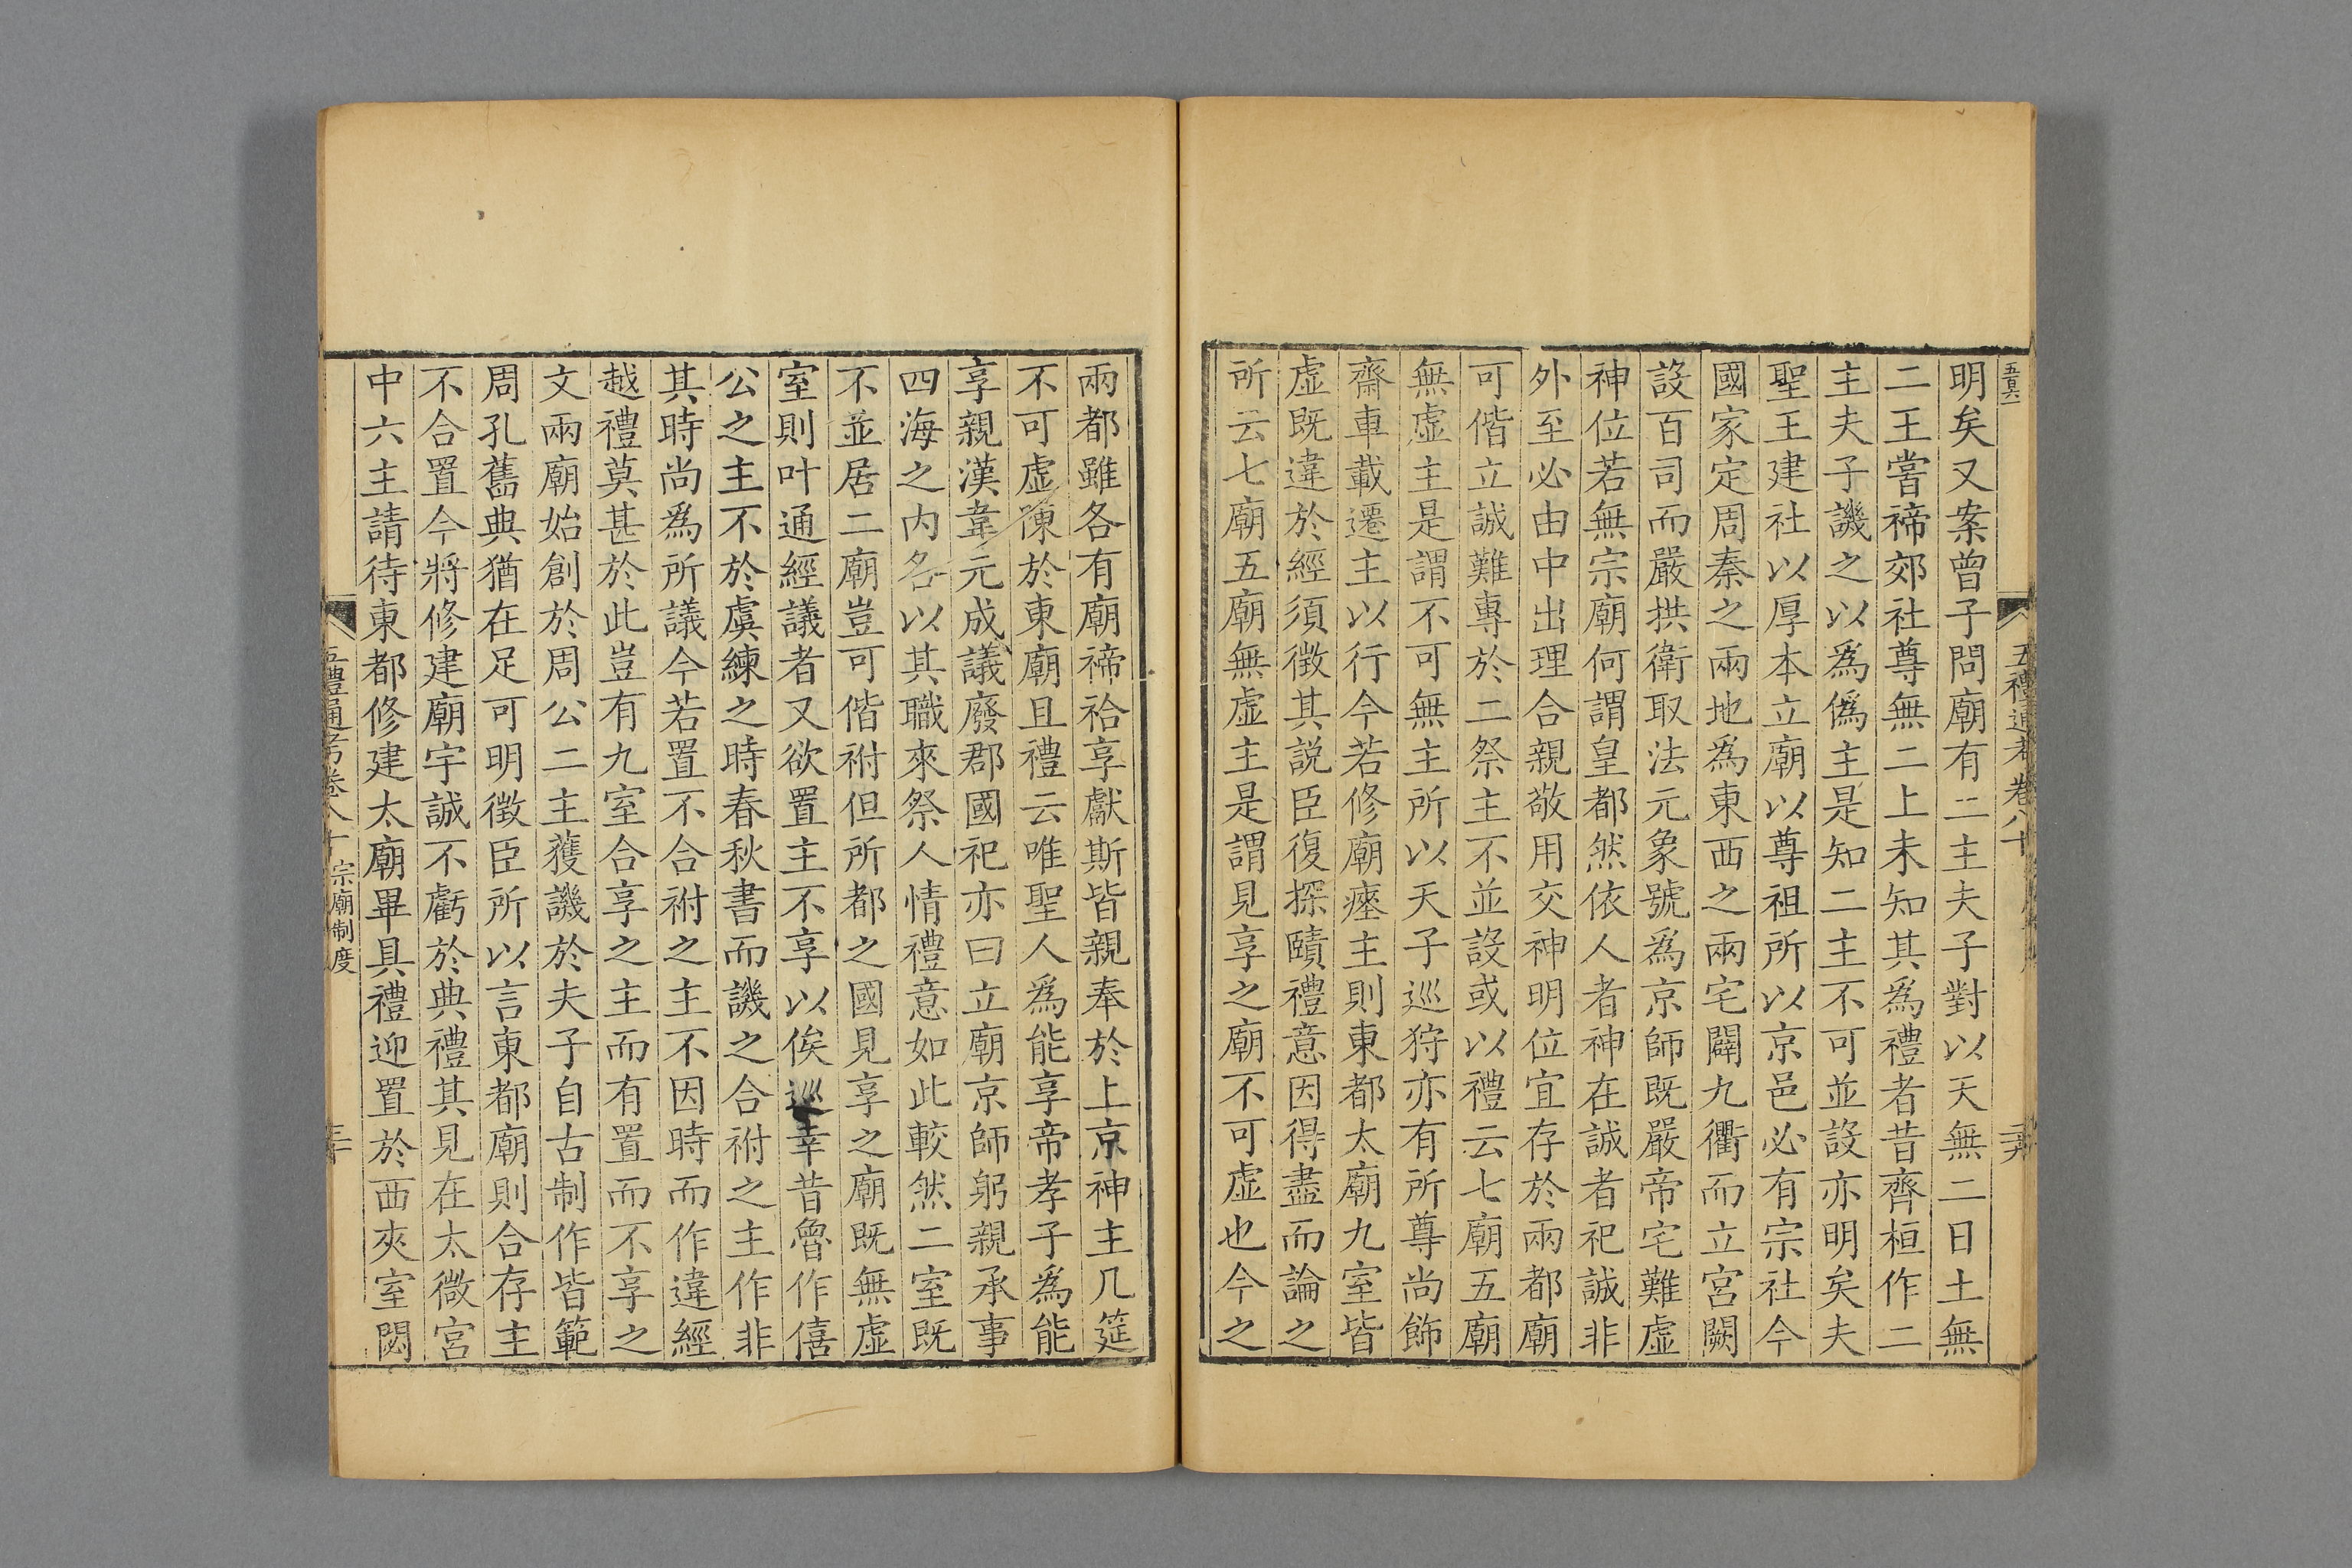 明矣又案曾子問廟有二主夫子對以天無二日土無
二王嘗禘郊社尊無二上未知其爲禮者昔齊桓作二
主夫子譏之以爲僞主是知二主不可並設亦明矣夫
聖王建社以厚本立廟以尊祖所以京邑必有宗社今
國家定周秦之兩地爲東西之兩宅闢九衢而立宮闕
設百司而嚴拱衛取法元象號爲京師既嚴帝宅難虛
神位若無宗廟何謂皇都然依人者神在誠者祀誠非
外至必由中出理合親敬用交神明位宜存於兩都廟
可偕立誠難專於二祭主不並設或以禮云七廟五廟
無虛主是謂不可無主所以天子巡狩亦有所尊尚飾
齋車載遷主以行今若修廟瘞主則東都太廟九室皆
虛既違於經須徵其說臣復探賾禮意因得盡而論之
所云七廟五廟無虛主是謂見享之廟不可虛也今之
兩都雖各有廟禘祫享獻斯皆親奉於上京神主几筵
不可虛陳於東廟且禮云唯聖人爲能享帝孝子爲能
享親漢韋元成議廢郡國祀亦曰立廟京師躬親承事
四海之內各以其職來祭人情禮意如此較然二室既
不並居二廟豈可偕祔但所都之國見享之廟既無虛
室則叶通經議者又欲置主不享以俟巡幸昔魯作僖
公之主不於虞練之時春秋書而譏之合祔之主作非
其時尚爲所議今若置不合祔之主不因時而作違經
越禮莫甚於此豈有九室合享之主而有置而不享之
文兩廟始創於周公二主獲譏於夫子自古制作皆範
周孔舊典猶在足可明徵臣所以言東都廟則合存主
不合置今將修建廟宇誠不虧於典禮其見在太微宮
中六主請待東都修建太廟畢具禮迎置於西夾室閟
五禮通考卷八十 宗廟制度